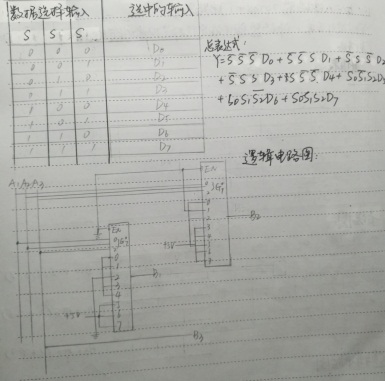 数据选择输入 选中的输入
S S S
0 0 0 D₀
0 0 1 D₁
0 1 0 D₂
0 1 1 D₃
1 0 0 D₄
1 0 1 D₅
1 1 0 D₆
1 1 1 D₇
总表达式:
Y=S̅ S̅ S̅ D₀ + S̅ S̅ S D₁ + S̅ S S̅ D₂
+ S̅ S S D₃ + S S̅ S̅ D₄ + S₀S̅₁S₂D₅
+ S₀S₁S̅₂D₆ + S₀S₁S₂D₇
逻辑电路图:
A₁ A₂ A₃
EN
B₂
+5V
EN
B₁
+5V
B₃